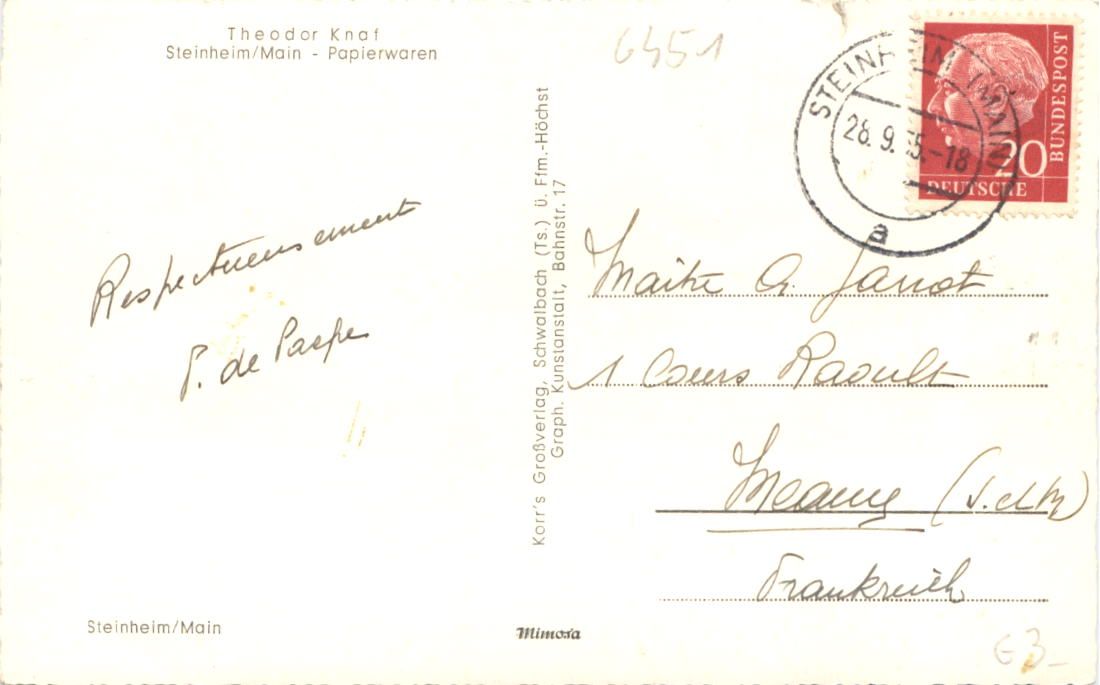 Theodor Knaf
Steinheim/Main - Papierwaren
6451
STEINHEIM (MAIN)
28.9.55.-18
a
BUNDESPOST
20
DEUTSCHE
Respectueusement
P. de
Korr's Großverlag, Schwalbach (Ts.) ü. Ffm.-Höchst
Graph. Kunstanstalt, Bahnstr. 17
Maitre G. Janot
1 Cours Raoult
Meaux (S. et M)
Frankreich
Steinheim/Main
Mimosa
G3-